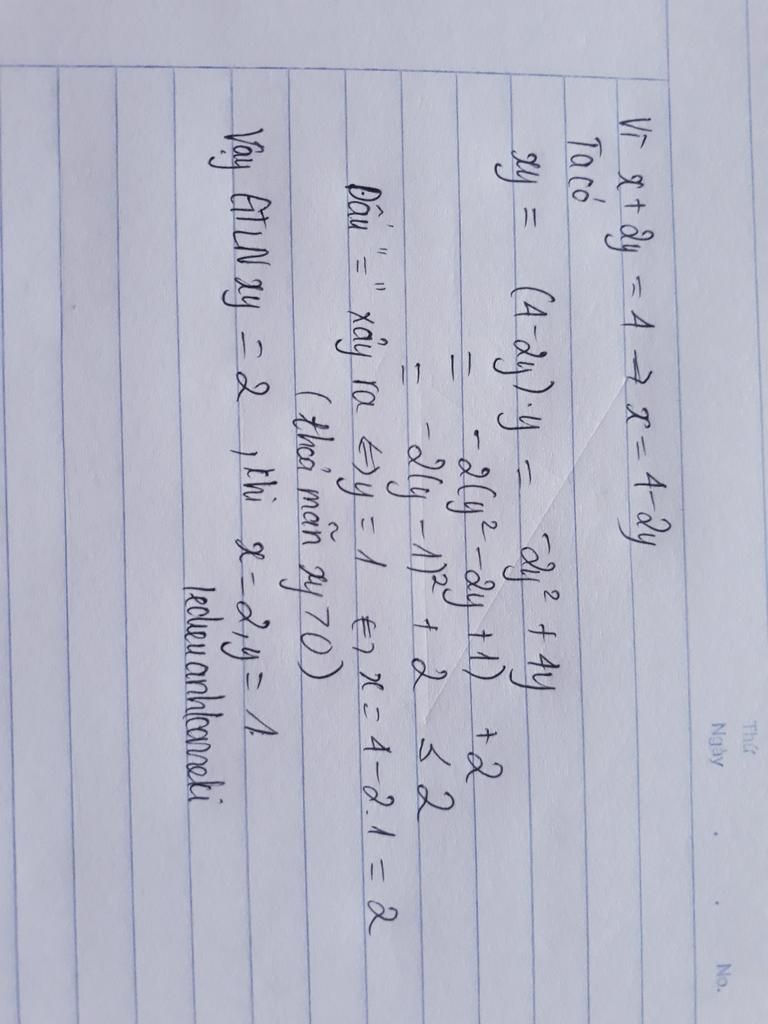 Thứ
Ngày . . No.
Vì x + 2y = 4 → x = 4-2y
Ta có
xy = (4-2y).y = -2y² + 4y
= -2(y² - 2y + 1) + 2
= -2(y - 1)² + 2 ≤ 2
Dấu "=" xảy ra ⇔ y = 1 ⇔ x = 4 - 2.1 = 2
(thoả mãn xy > 0)
Vậy GTLN xy = 2, thì x = 2, y = 1